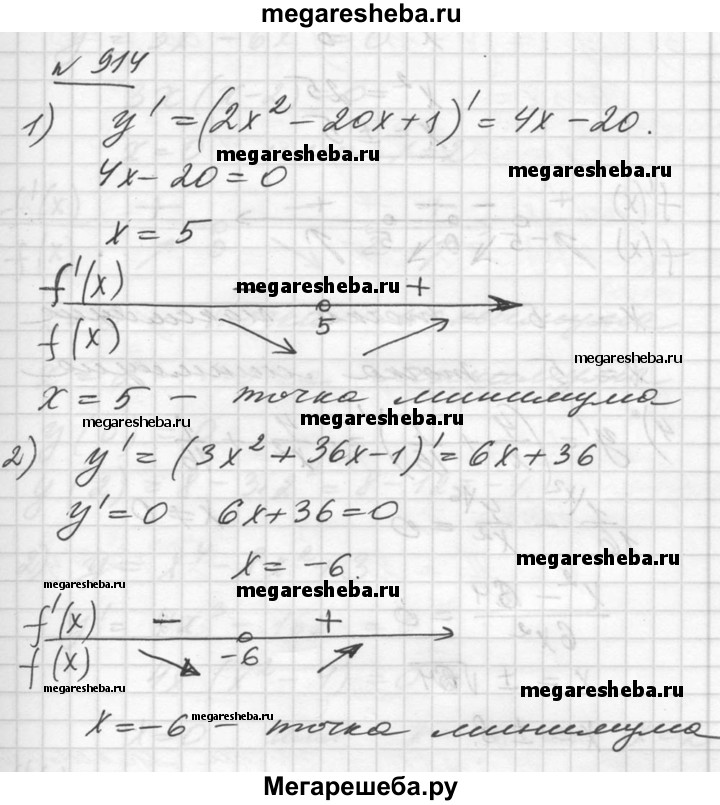 megaresheba.ru
№ 914
1) y' = (2x² - 20x + 1)' = 4x - 20.
megaresheba.ru
megaresheba.ru
4x - 20 = 0
x = 5
f'(x) megaresheba.ru +
5
f(x)
megaresheba.ru
x = 5 - точка минимума
megaresheba.ru megaresheba.ru
2) y' = (3x² + 36x - 1)' = 6x + 36
y' = 0 6x + 36 = 0
megaresheba.ru
x = -6.
megaresheba.ru megaresheba.ru
f'(x) - +
-6
f(x)
megaresheba.ru megaresheba.ru
x = -6 megaresheba.ru - точка минимума
Мегарешеба.ру